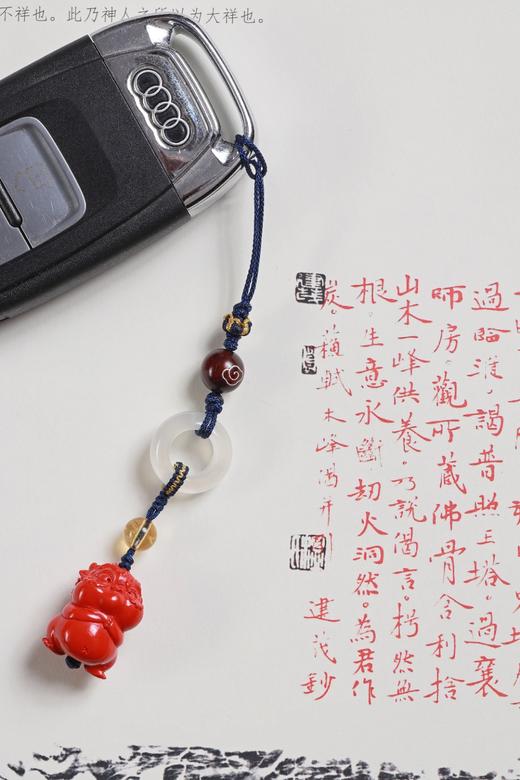 不祥也。此乃神人之所以为大祥也。
過臨淮。謁普照王塔。過襄
師房。觀所藏佛骨舍利捨
山木一峰供養。乃說偈言。枵然無
根。生意永斷。劫火洞然。為君作
炭。蘇軾木峰偈并
建茂鈔